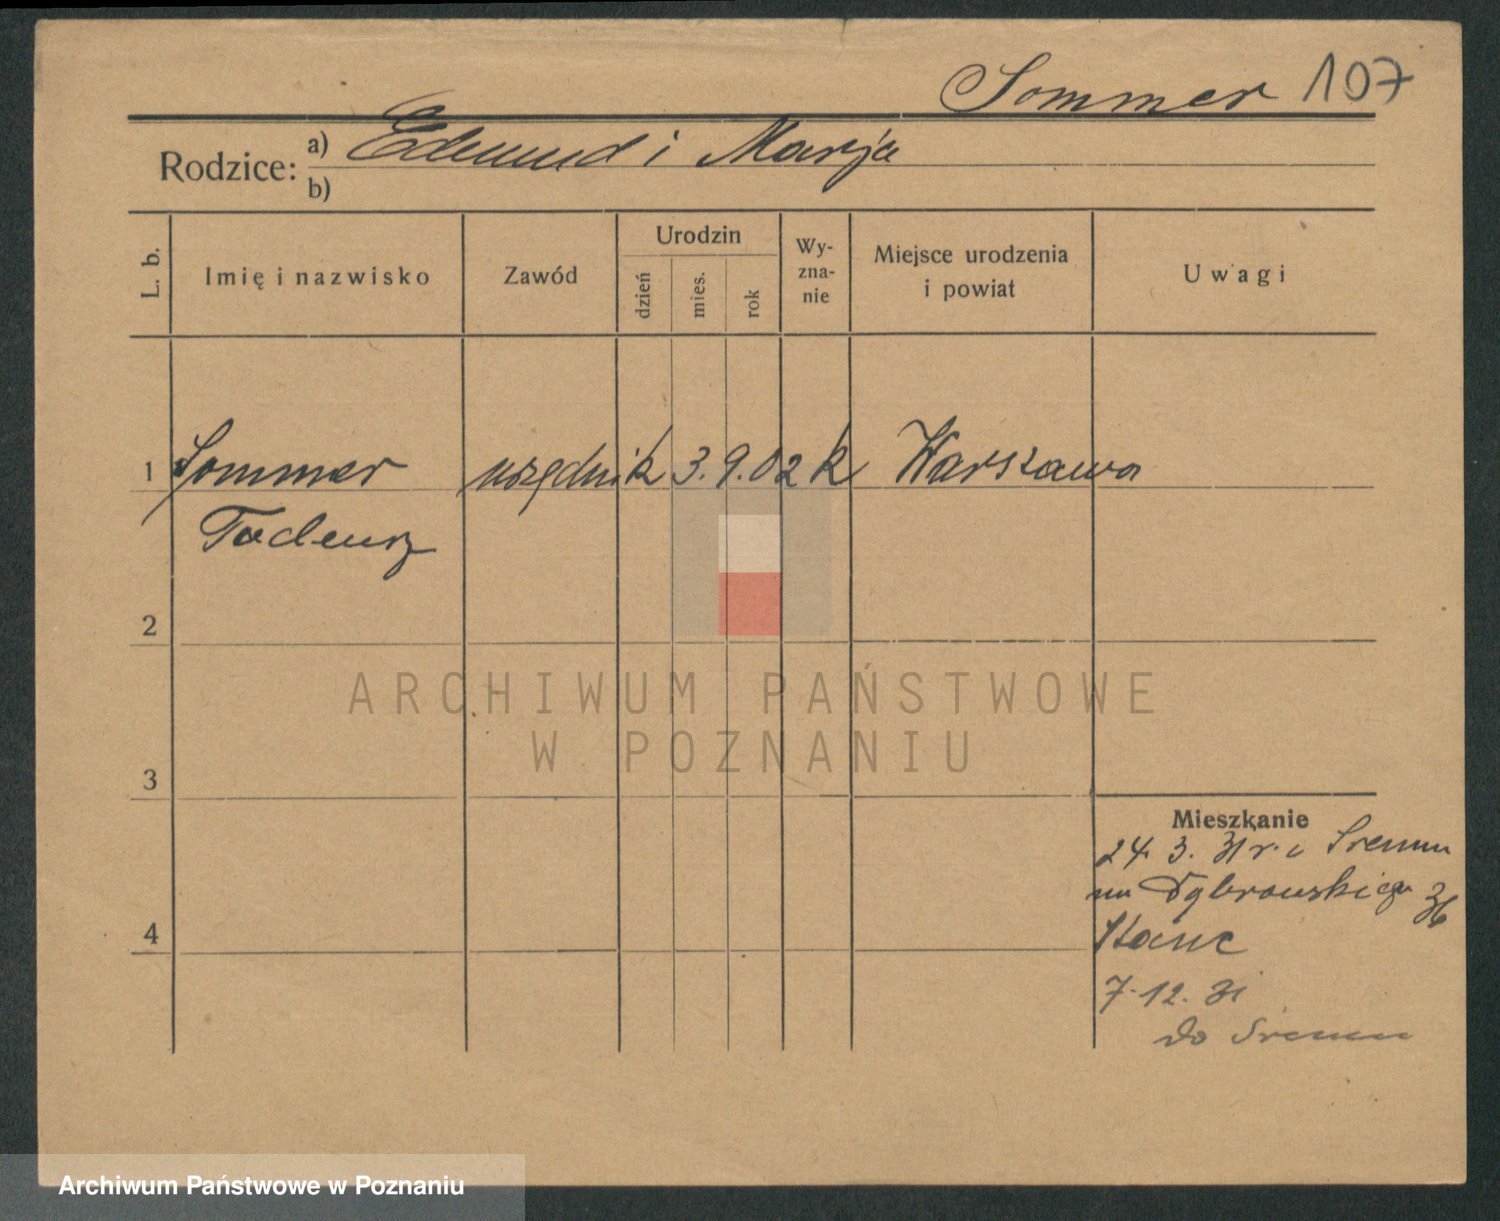 Sommer 107
Rodzice: a) Edmund i Marja
b)
L. b.
Imię i nazwisko
Zawód
Urodzin
dzień
mies.
rok
Wy-
zna-
nie
Miejsce urodzenia
i powiat
Uwagi
1 Sommer urzędnik 3. 9. 02 k Warszawa
Tadeusz
2
ARCHIWUM PAŃSTWOWE
W POZNANIU
3
Mieszkanie
24. 3. 31 r. Śremu
Dąbrowskiego 36
4
7.12. 31
do Śremu
Archiwum Państwowe w Poznaniu